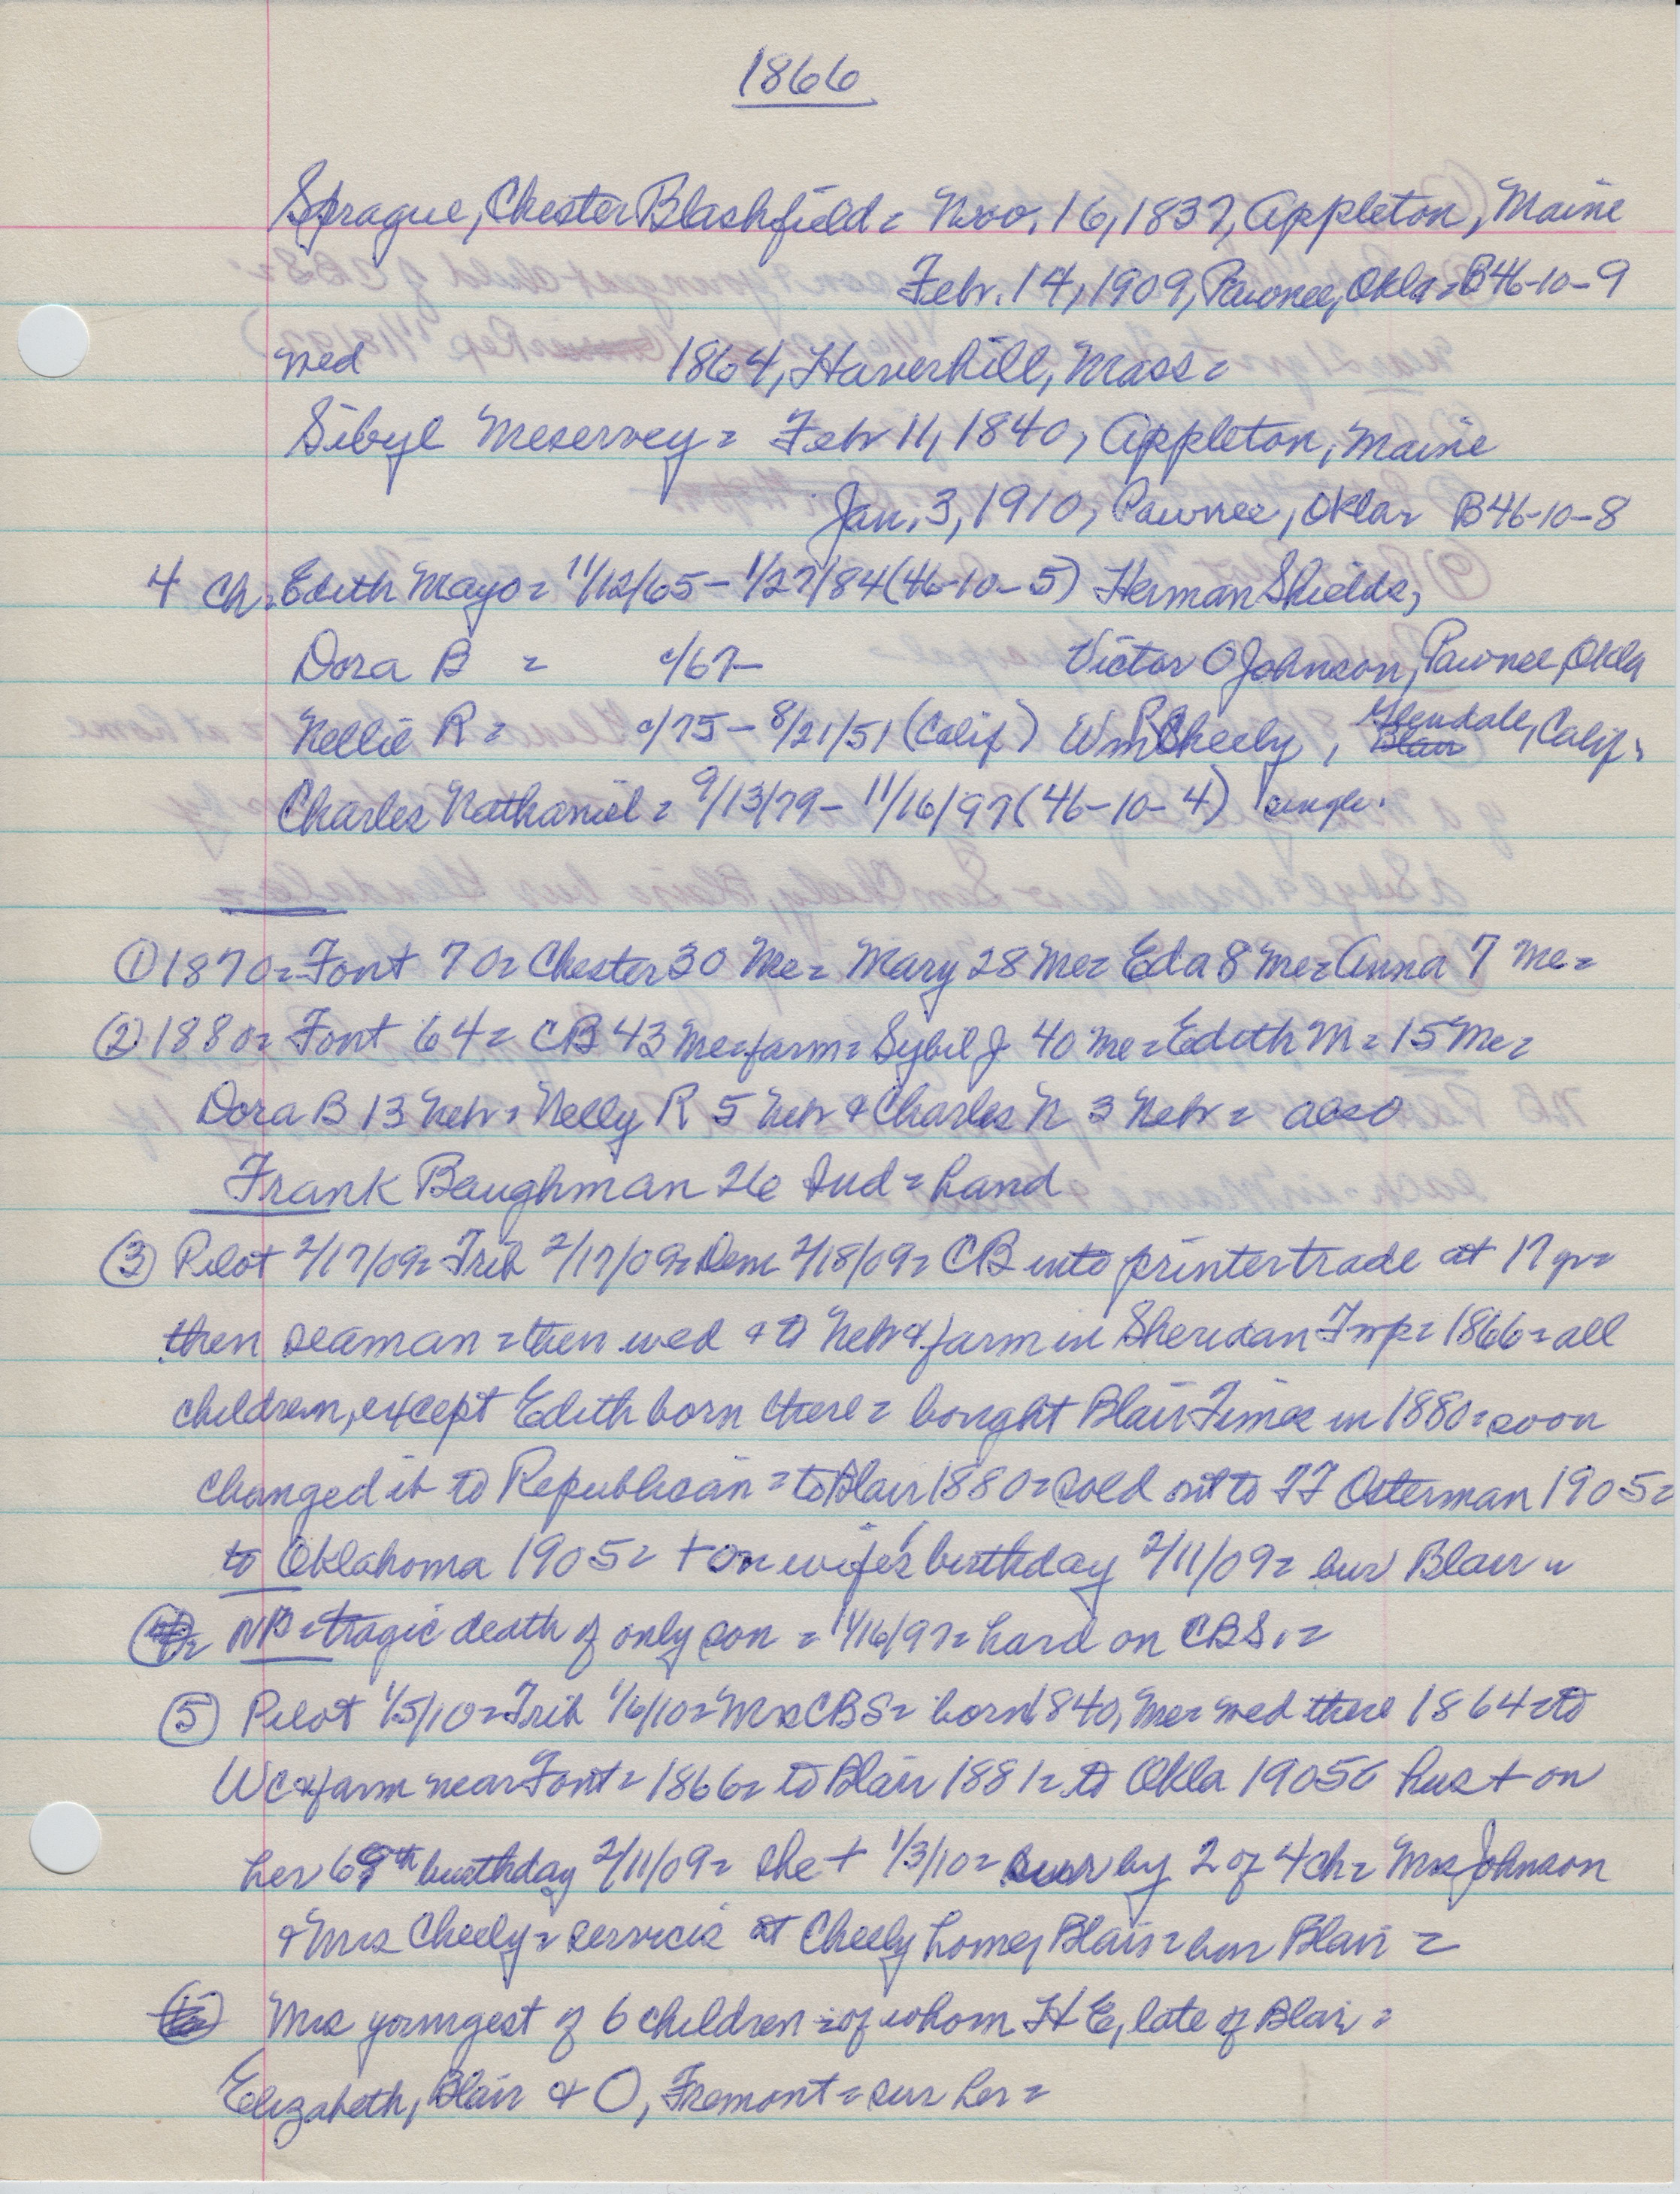 1866
Sprague, Chester Blashfield = Nov. 16, 1837, Appleton, Maine
Febr. 14, 1909, Pawnee, Okla = B46-10-9
wed 1864, Haverhill, Mass =
Sibyl Meservey = Febr 11, 1840, Appleton, Maine
Jan. 3, 1910, Pawnee, Okla = B46-10-8
4 ch. Edith Mayo = 11/12/65 - 1/27/84 (46-10-5) Herman Shields,
Dora B = c/67- Victor O Johnson, Pawnee, Okla
Nellie R = c/75 - 8/21/51 (Calif) Wm Cheely, Blair Glendale, Calif.
Charles Nathaniel = 9/13/79 - 11/16/97 (46-10-4) single.
① 1870 = Font 70 = Chester 30 Me = Mary 28 Me = Eda 8 Me = Anna 7 Me =
② 1880 = Font 64 = CB 43 Me = farm = Sybil J 40 Me = Edith M = 15 Me =
Dora B 13 Nebr = Nelly R 5 Nebr & Charles N 3 Nebr = also
Frank Baughman 26 Ind = hand
③ Pilot 2/17/09 = Trib 2/17/09 = Dem 2/18/09 = CB into printer trade at 17 yr =
then seaman = then wed & to Nebr & farm in Sheridan Twp = 1866 = all
children, except Edith born there = bought Blair Times in 1880 = soon
changed it to Republican = to Blair 1880 = sold out to TT Osterman 1905 =
to Oklahoma 1905 = + on wife's birthday 2/11/09 = bur Blair =
④ = NB = tragic death of only son = 11/16/97 = hard on CBS. =
⑤ Pilot 1/5/10 = Trib 1/6/10 = Mrs CBS = born 1840, Me = wed there 1864 = to
WC & farm near Font = 1866 = to Blair 1881 = to Okla 1905 hus + on
her 69th birthday 2/11/09 = she + 1/3/10 = sur by 2 of 4 ch = Mrs Johnson
& Mrs Cheely = services at Cheely home, Blair = bur Blair =
Mrs youngest of 6 children = of whom H E, late of Blair =
Elizabeth, Blair & O, Fremont = sur her =